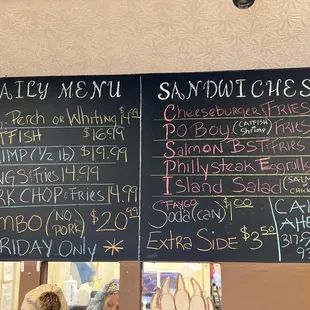 AILY MENU
Perch OR Whiting $14.99
TFISH $16.99
IMP (1/2 lb) $19.99
NGS & Fries 14.99
RK CHOP & Fries 14.99
MBO (NO PORK) $20.99
RIDAY ONLY
SANDWICHES
Cheeseburger & FRIES
PO BOY (CATFISH Shrimp) FRIES
SALMON BST & FRIES
Phillysteak Eggrolls
ISLAND SALAD
FAYGO
SODA (CAN) $1.00
EXTRA Side $3.50
CAL
AHE
317-9
93